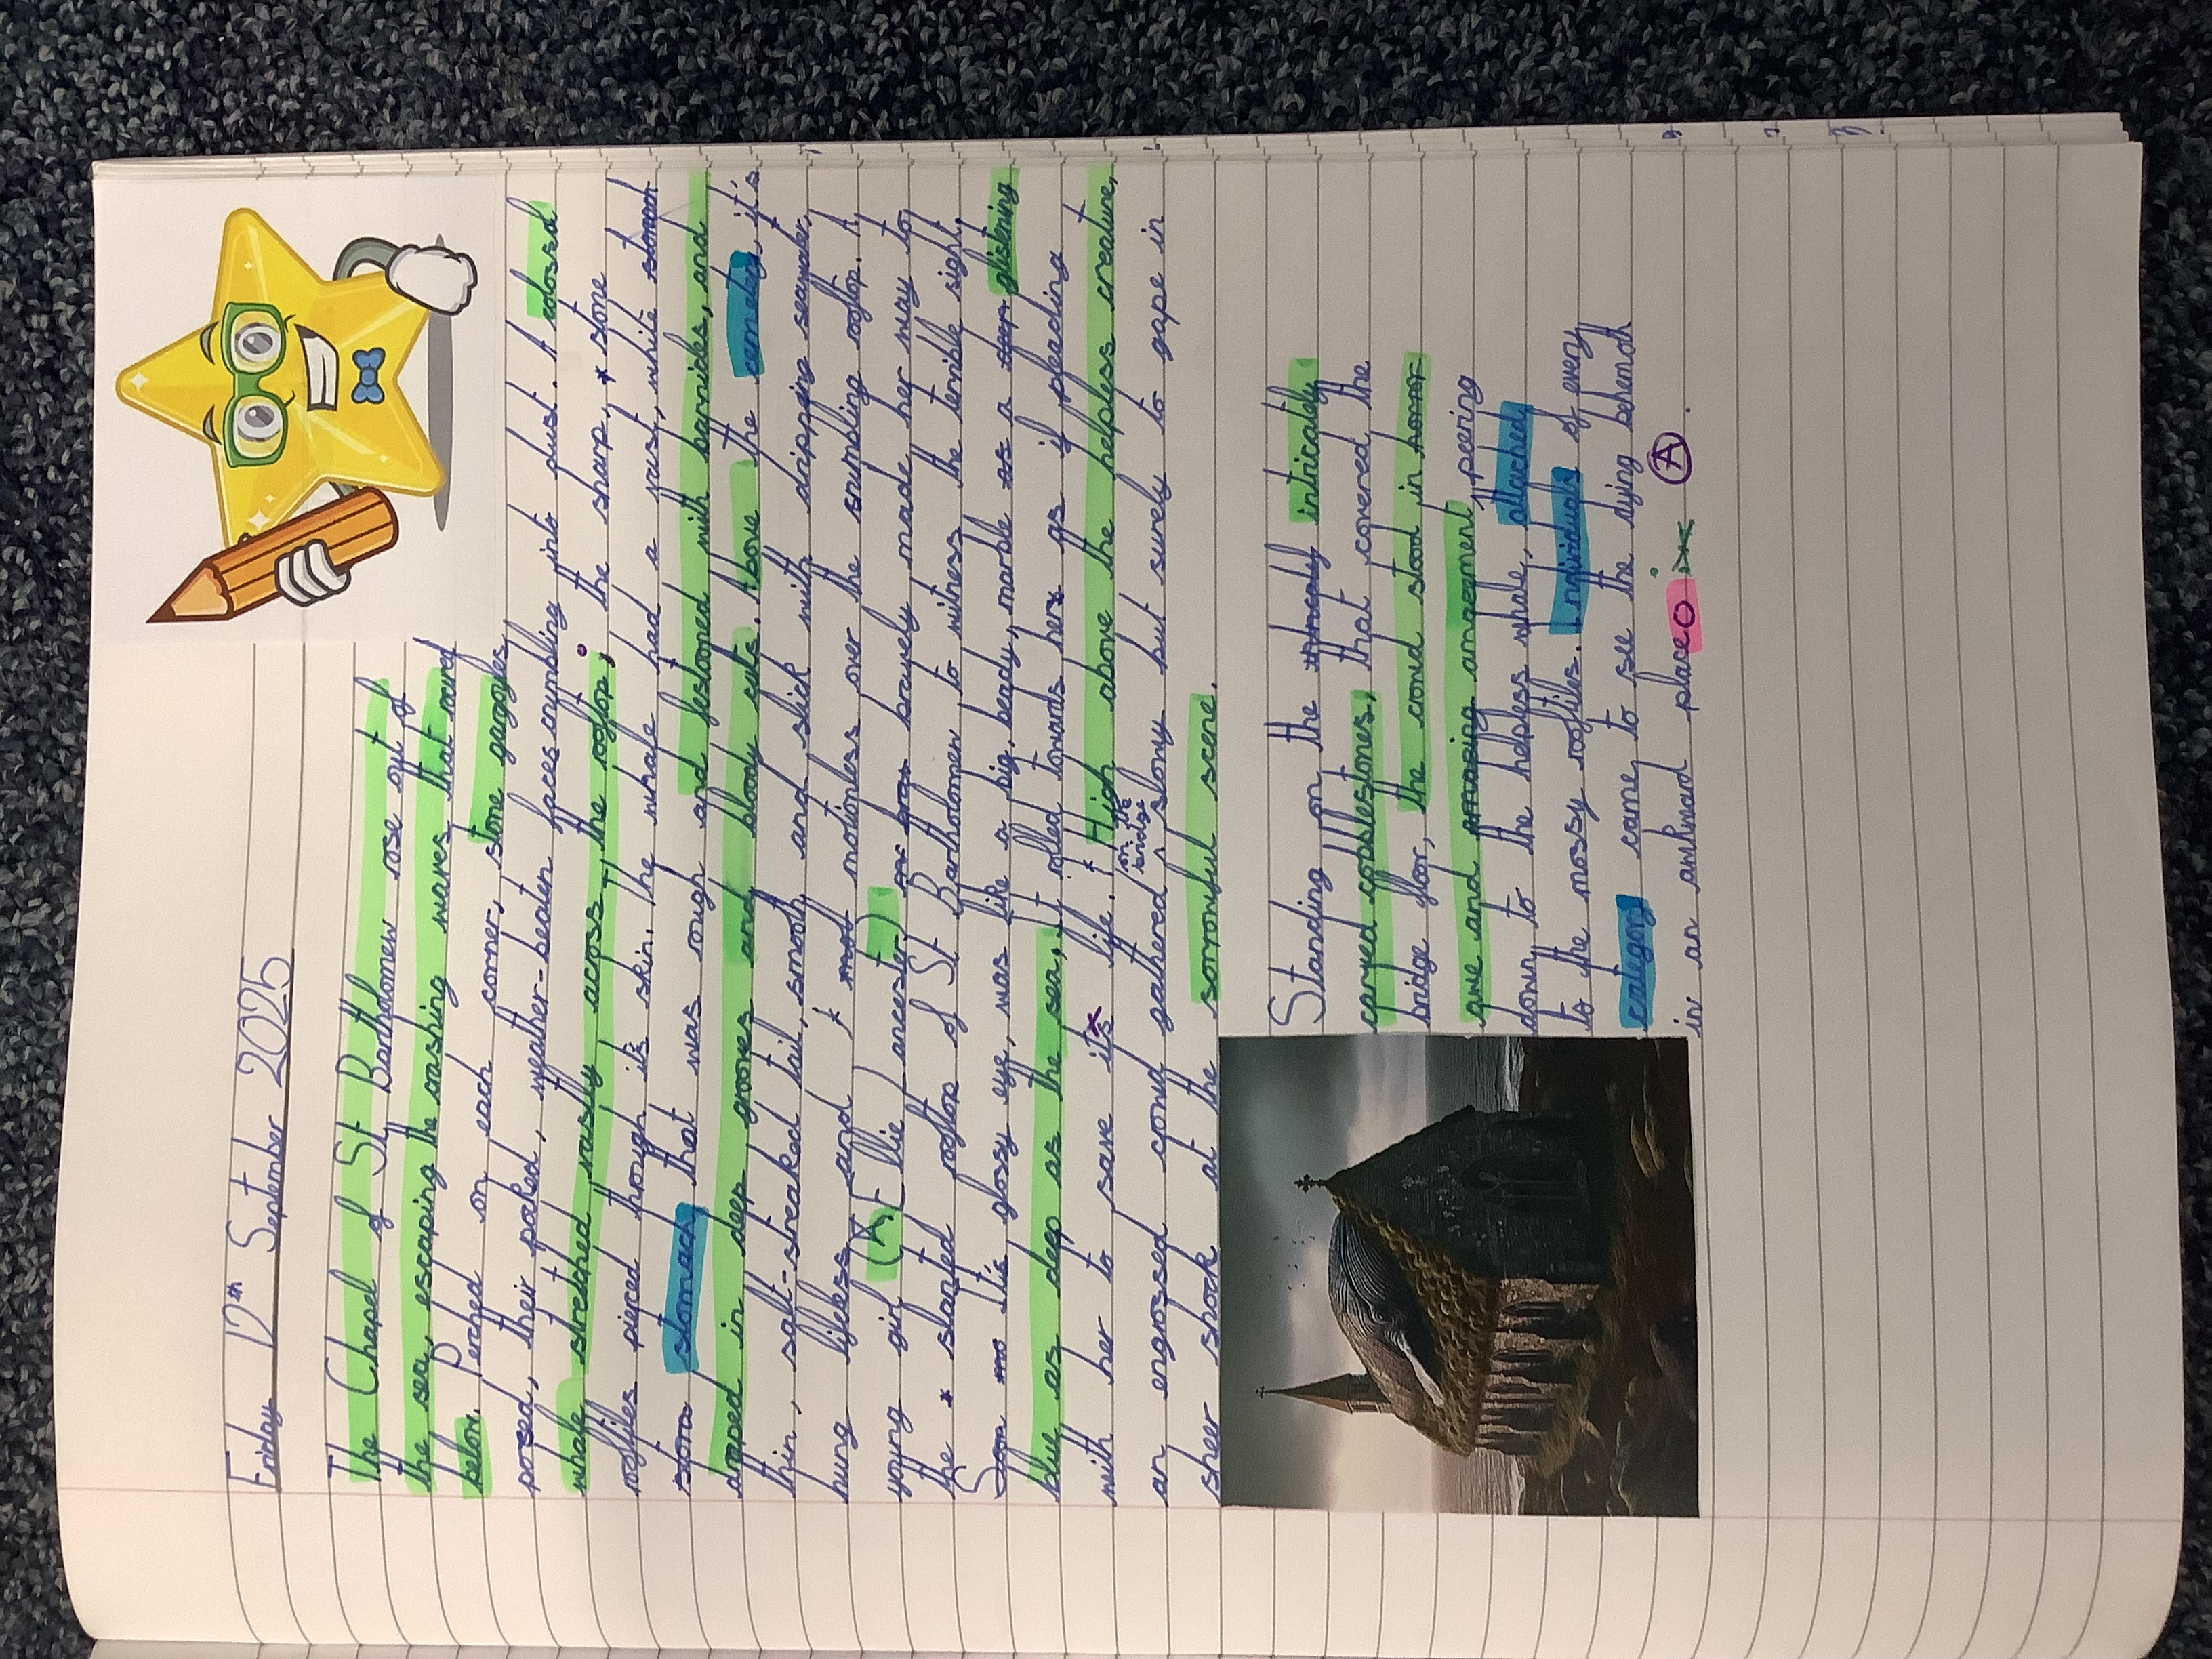 Friday 12th September 2025
The Chapel of St Bartholomew rose out of
the sea, escaping the crashing waves that mived
below. Perched on each corner, stone gargoyles
posed, their pocked, weather-beaten faces crumbling into dust. A colossal
whale stretched vastly across the rooftop, the sharp, stone
rooftiles pierced though it's skin. The whale had a vast, white
stomach that was rough and festooned with barnicles, and
armped in deep grooves and bloody cuts. Above the cemetery, it's
thin, salt-streaked tail, smooth and slick with dripping seawater,
hung lifeless and motionless over the crumbling rooftop. A
young girl (Ellie) ancester) bravely made her way to
the slanted rooftop of St Bartholomew to witness the terrible sight.
It's glossy eye, was like a big, beady, marble glistening
blue as deep as the sea, it rolled towards her as if pleading
with her to save its life. High above the helpless creature,
an engrossed crowd gathered on the bridge slowly but surely to gape in
sheer shock at the sorrowful scene.
Standing on the intricately
carved cobblestones, that covered the
bridge floor, the crowd stood in
awe and amazement peering
down to the helpless whale, attached
to the mossy rooftiles. Individuals of every
category came to see the dying behemoth
in an awkward place.
A